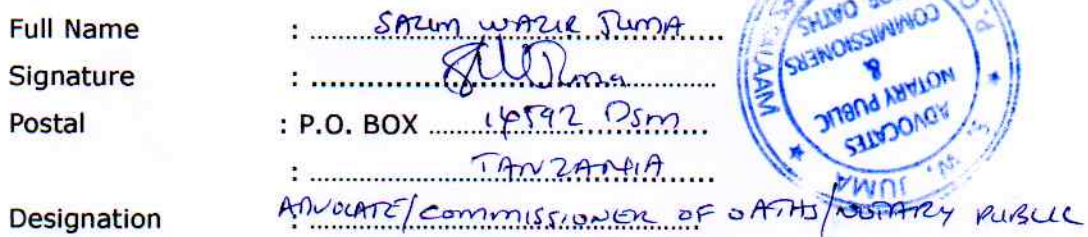 Full Name : SALIM WAZIR JUMA
Signature :
Postal : P.O. BOX DSM
: TANZANIA
Designation : ADVOCATE/COMMISSIONER OF OATHS/NOTARY PUBLIC
ADVOCATES
NOTARY PUBLIC
&
COMMISSIONERS
OF OATHS
S. W. JUMA
P.O.
ES SALAAM